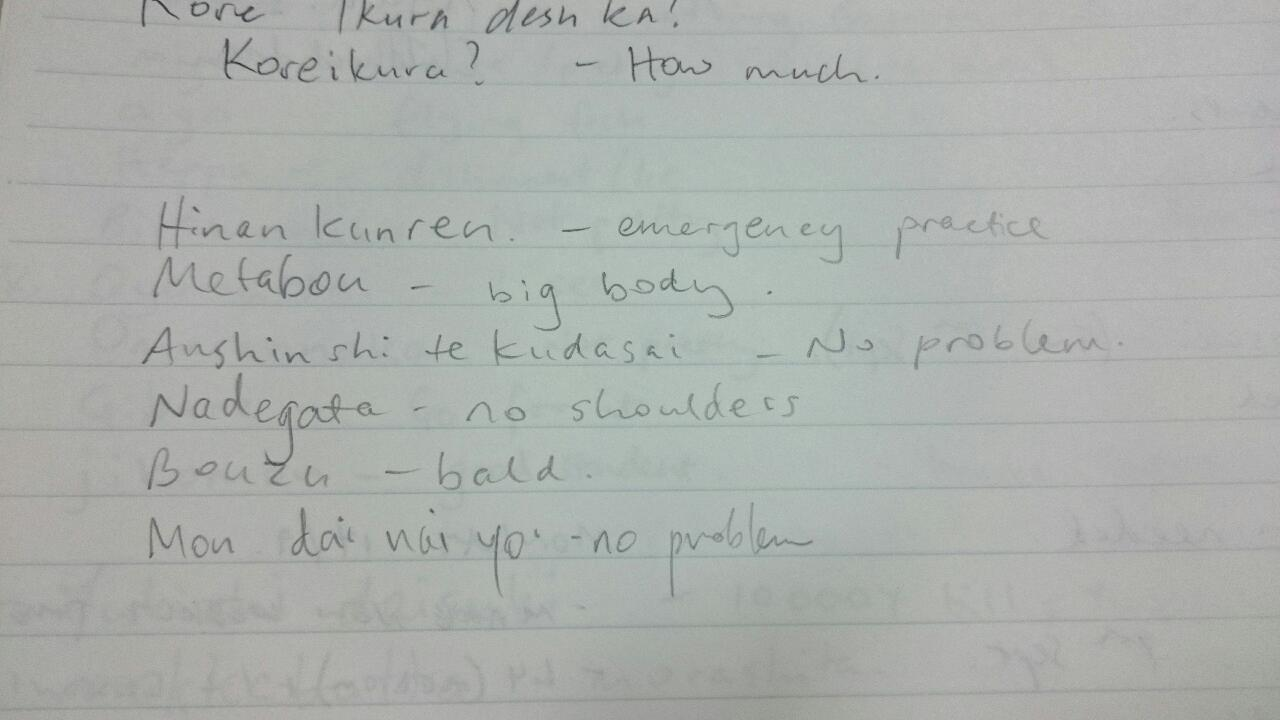 Kore Ikura desh ka?
Koreikura? - How much.
Hinan kunren. - emergency practice
Metabou - big body.
Anshin shi te kudasai - No problem.
Nadegata - no shoulders
Bouzu - bald.
Mon dai nai yo - no problem